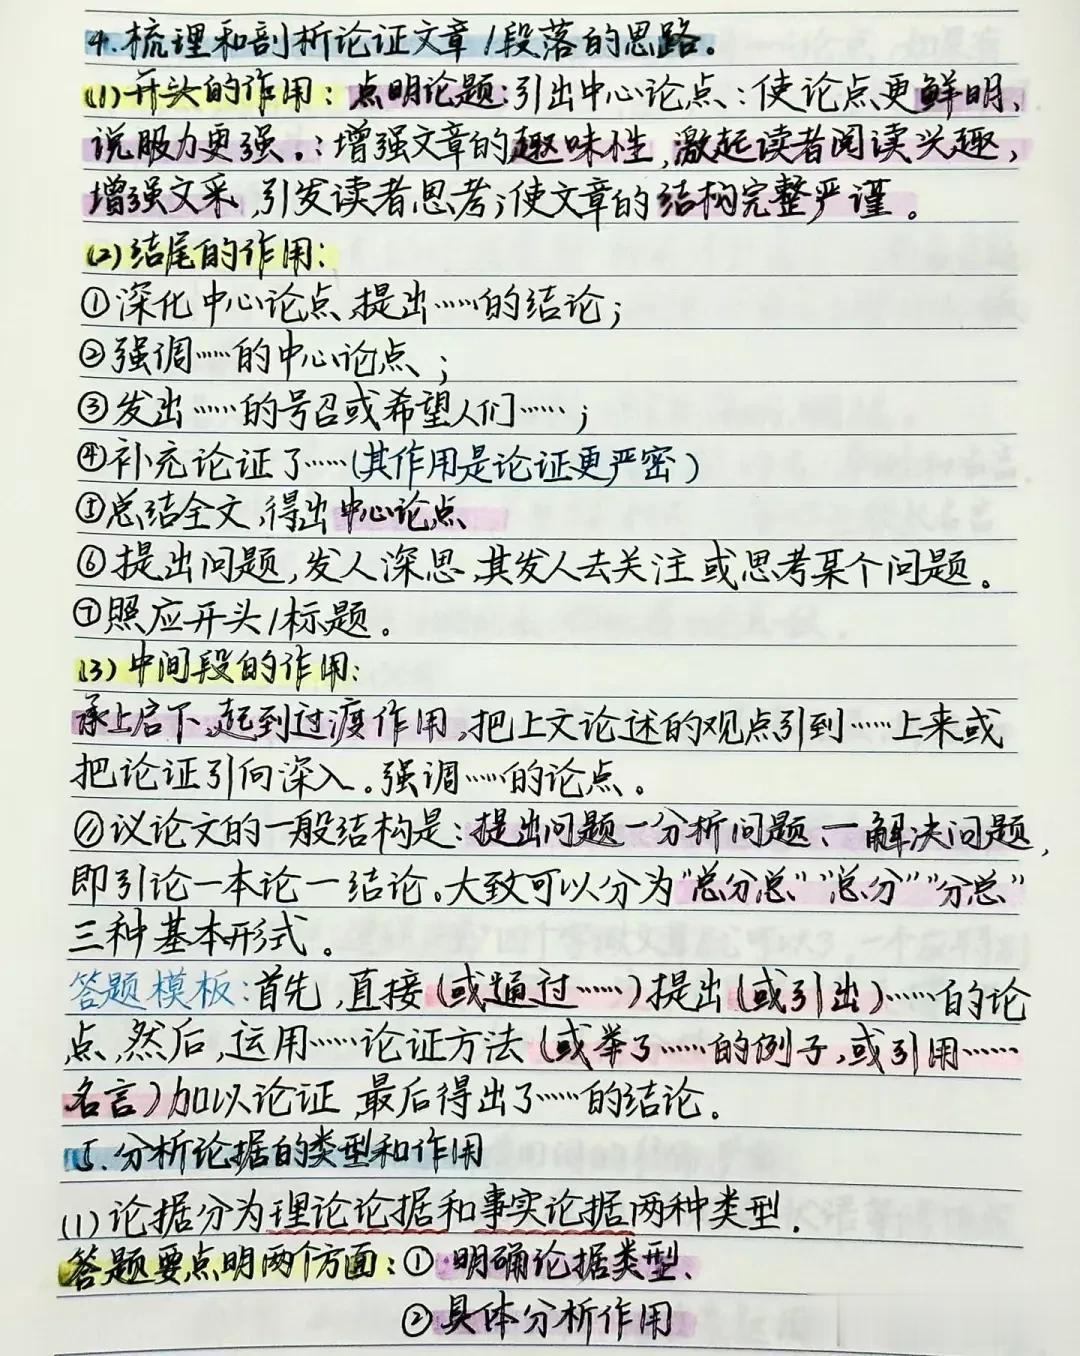 4.梳理和剖析论证文章/段落的思路。
(1)开头的作用：点明论题;引出中心论点；使论点更鲜明、
说服力更强。；增强文章的趣味性,激起读者阅读兴趣,
增强文采,引发读者思考;使文章的结构完整严谨。
(2)结尾的作用：
①深化中心论点,提出……的结论；
②强调……的中心论点；
③发出……的号召或希望人们……；
④补充论证了……(其作用是论证更严密)
⑤总结全文,得出中心论点
⑥提出问题,发人深思,其发人去关注或思考某个问题。
⑦照应开头/标题。
(3)中间段的作用：
承上启下,起到过渡作用,把上文论述的观点引到……上来或
把论证引向深入。强调……的论点。
//议论文的一般结构是：提出问题—分析问题、—解决问题,
即引论—本论—结论。大致可以分为“总分总”“总分”“分总”
三种基本形式。
答题模板：首先,直接(或通过……)提出(或引出)……的论
点,然后,运用……论证方法(或举了……的例子,或引用……
名言)加以论证,最后得出了……的结论。
5.分析论据的类型和作用
(1)论据分为理论论据和事实论据两种类型.
答题要点明两个方面：①明确论据类型、
②具体分析作用